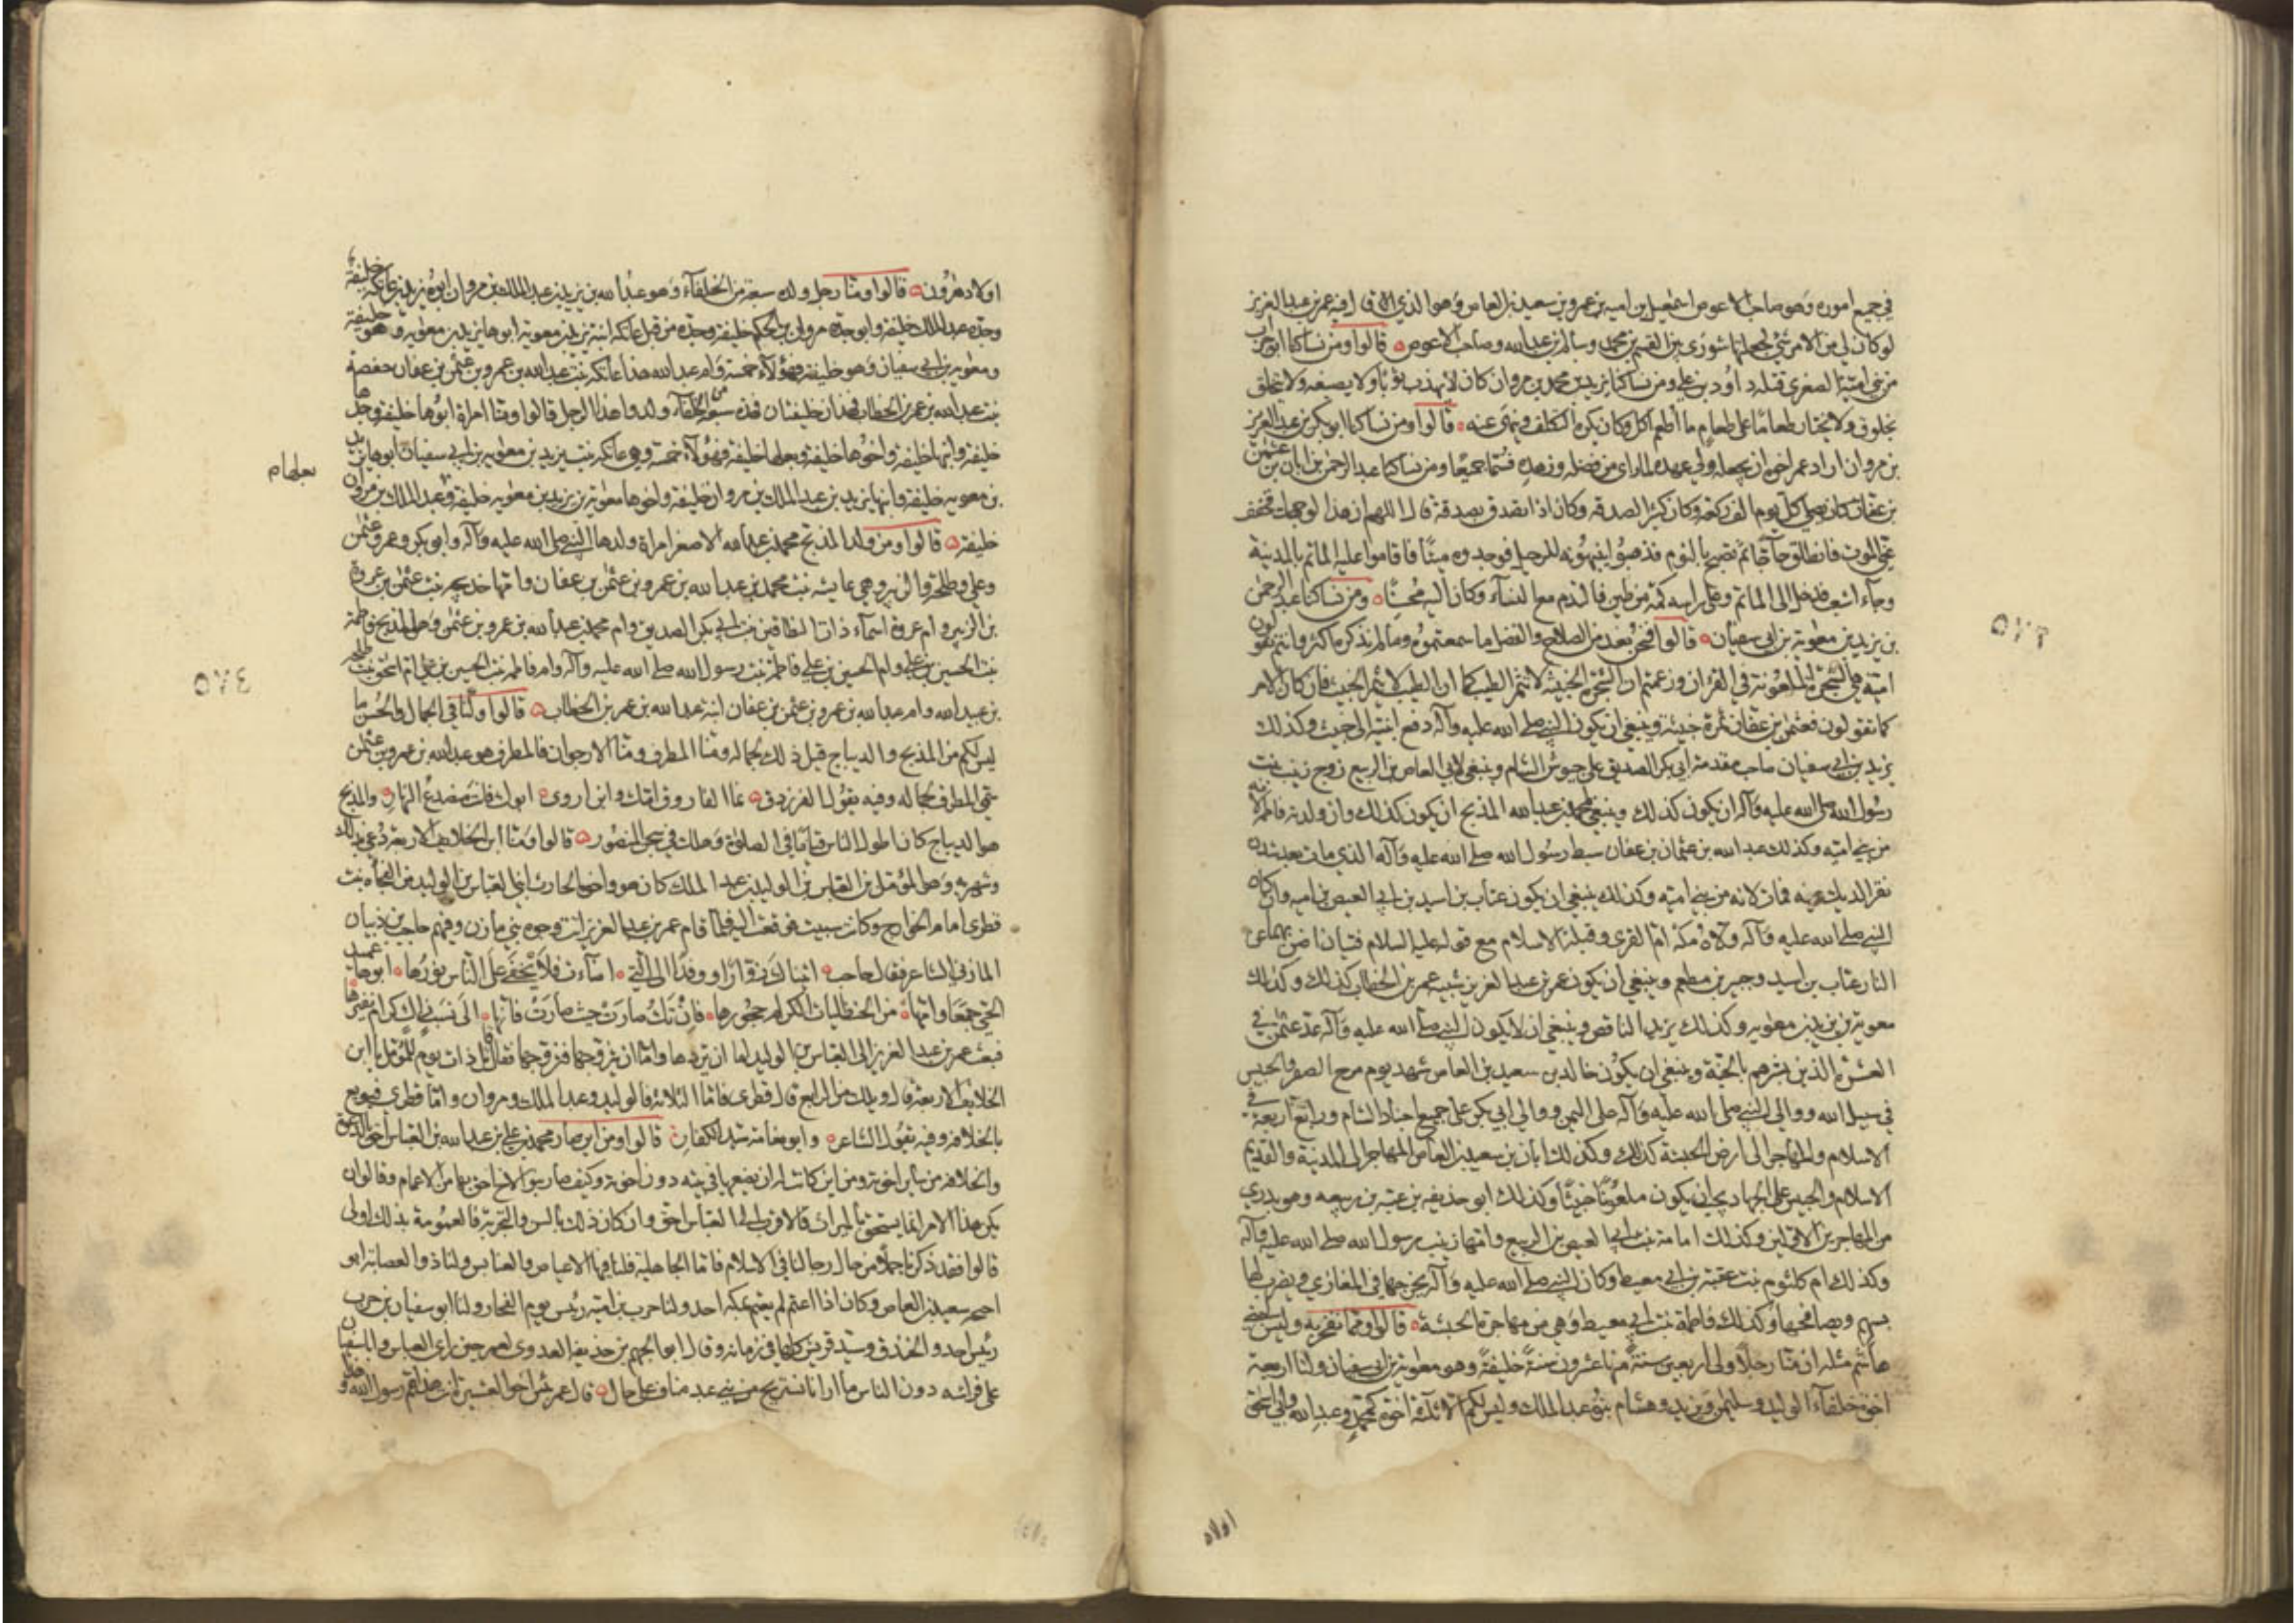 في جميع اموره وهو صاحب الاعوص اسمعيل بن اميه بن عمرو بن سعيد بن العاص وهو الذي قال فيه عمر بن عبد العزيز
لو كان لي من الامر شئ لجعلتها شورى بين القسم بن محمد وسالم بن عبد الله وصاحب الاعوص قالوا ومن نساكنا ابو حرب
من بني امية الصغرى قتله داود بن علي ومن نساكنا يزيد بن محمد بن مروان كان لا يهذب ثوبا ولا يصبغه ولا يتخلق
بخلوق ولا يختار طعاما على طعام ما أطعم اكل وكان يكره التكلف وينهى عنه قالوا ومن نساكنا ابو بكر بن عبد العزيز
بن مروان اراد عمر اخوه ان يجعله ولي عهده لما راى من فضله وزهده فسما جميعا ومن نساكنا عبد الرحمن بن ابان بن عثمن
بن عفان كان يصلي كل يوم الف ركعة وكان كثير الصدقه وكان اذا تصدق بصدقة قال اللهم ان هذا لوجهك فخفف
عني الموت فانطلق حاجا ثم تصبح بالنوم فذهبوا ينبهونه للرحيل فوجدوه ميتا فاقاموا عليه الماتم بالمدينة
وجاء اشعب فدخل الى الماتم وعلى راسه كبة من طين فالتدم مع النساء وكان اليه محسنا ومن نساكنا عبد الرحمن
بن يزيد بن معوية بن ابي سفيان قالوا فنحن نعد من الصلاح والفضل ما سمعتموه وما لم نذكره اكثر وانتم تقولون
امية هي الشجرة الملعونة في القران وزعمتم ان الشجرة الخبيثة لا تثمر الطيب كما ان الطيب لا يثمر الخبيث فان كان الامر
كما تقولون فعثمن بن عفان ثمرة خبيثة وينبغي ان يكون النبي صلى الله عليه وآله دفع ابنتيه الى خبيث وكذلك
يزيد بن ابي سفيان صاحب مقدمة ابي بكر الصديق على جيوش الشام وينبغي لابي العاص بن الربيع زوج زينب بنت
رسول الله صلى الله عليه وآله ان يكون كذلك وينبغي لمحمد بن عبد الله المذبح ان يكون كذلك وان ولدته فاطمة لانه
من بني اميه وكذلك عبد الله بن عثمان بن عفان سبط رسول الله صلى الله عليه وآله الذي مات بعد شدن
نقر الديك عينه فمات لانه من بني اميه وكذلك ينبغي ان يكون عتاب بن اسيد بن ابي العيص بن اميه وان كان
النبي صلى الله عليه وآله ولاه مكة ام القرى وقبلة الاسلام مع قوله عليه السلام فتيان اضن بهما عن
النار عتاب بن اسيد وجبير بن مطعم وينبغي ان يكون عمر بن عبد العزيز شبيه عمر بن الخطاب كذلك وكذلك
معوية بن يزيد بن معويه وكذلك يزيد الناقص وينبغي ان لا يكون النبي صلى الله عليه وآله عد عثمن في
العشرة الذين بشرهم بالجنة وينبغي ان يكون خالد بن سعيد بن العاص شهيد يوم مرج الصفر والحبيس
في سبيل الله ووالي النبي صلى الله عليه وآله على اليمن ووالي ابي بكر على جميع اجناد الشام ورابع اربعة في
الاسلام والمهاجر الى ارض الحبشة كذلك وكذلك ابان بن سعيد بن العاص المهاجر الى المدينة والقديم
الاسلام والحبيس على الجهاد يجب ان يكون ملعونا خبيثا وكذلك ابو حذيفه بن عتبه بن ربيعه وهو بدري
من المهاجرين الاولين وكذلك امامة بنت ابي العيص بن الربيع وامها زينب رسول الله صلى الله عليه وآله
وكذلك ام كلثوم بنت عقبة بن ابي معيط وكان النبي صلى الله عليه وآله يخرجها في المغازي ويضرب لها
بسهم ويصافحها وكذلك فاطمة بنت ابي معيط وهي من مهاجرة الحبشة قالوا ومما نفخر به وليس لبني
هاشم مثله ان منا رجلا ولي اربعين سنة منها عشرون سنة خليفة وهو معوية بن ابي سفيان ولنا اربعة
اخوة خلفاء الوليد وسليمن ويزيد وهشام بنو عبد الملك وليس لكم الا ثلثة اخوة محمد وعبد الله وابي اسحق
اولاد
٥٧٣
اولاد هرون قالوا ومنا رجل ولده سبعة من الخلفاء وهو عبد الله بن يزيد بن عبد الملك بن مروان ابوه يزيد بن عاتكه خليفة
وجده عبد الملك خليفة وابو جده مروان بن الحكم خليفة وجده من قبل عاتكه ابنة يزيد بن معوية ابوها يزيد بن معويه وهو خليفة
ومعويه بن ابي سفيان وهو خليفة فهؤلاء خمسة وام عبد الله هذا عاتكه بنت عبد الله بن عمرو بن عثمن بن عفان حفصة
بنت عبد الله بن عمر بن الخطاب فهذان خليفتان فهذه سبعة من الخلفاء ولدوا هذا الرجل قالوا ومنا امراة ابوها خليفة وجدها
خليفة وابنها خليفة واخوها خليفة وبعلها خليفة فهؤلاء خمسة وهي عاتكه بنت يزيد بن معويه بن ابي سفيان ابوها يزيد
بن معويه خليفة وابنها يزيد بن عبد الملك بن مروان خليفة واخوها معوية بن يزيد بن معويه خليفة وعبد الملك بن مروان
خليفة قالوا ومن ولد المذبح محمد بن عبد الله الاصغر امراة ولدها النبي صلى الله عليه وآله وابو بكر وعمر وعثمن
وعلي وطلحة والزبير وهي عايشه بنت محمد بن عبد الله بن عمرو بن عثمن بن عفان وامها خديجه بنت عثمن بن عروة
بن الزبير وام عروة اسماء ذات النطاقين بنت ابي بكر الصديق وام محمد بن عبد الله بن عمرو بن عثمن وهو المذبح فاطمة
بنت الحسين بن علي وام الحسين بن علي فاطمة بنت رسول الله صلى الله عليه وآله وام فاطمه بنت الحسين بن علي ام اسحق بنت طلحه
بن عبيد الله وام عبد الله بن عمرو بن عثمن بن عفان ابنة عبد الله بن عمر بن الخطاب قالوا ولنا في الجمال والحسن ما
ليس لكم منا المذبح والديباج قيل ذلك لجماله ومنا المطرف ومنا الارجوان فالمطرف هو عبد الله بن عمرو بن عثمن
سمي المطرف لجماله وفيه يقول الفرزدق نما الفاروق امك وابن اروى ابوك فانت منصدع النهار والمذبح
هو الديباج كان اطول الناس قياما في الصلوة وهلك في سجن المنصور قالوا ومنا ابن الخلائف الاربعة دعي بذلك
وشهر به وهو المؤمل بن العباس بن الوليد بن عبد الملك كان هو واخوه الحارث ابني العباس بن الوليد من الفجاءه بنت
قطرى امام الخوارج وكانت سبيت فوقعت اليه فلما قام عمر بن عبد العزيز اتت وجوه بني مازن وفيهم حاجب بن ذبيان
المازني الشاعر فقال حاجب اتيناك زوارا ووفدا الى التي اضاءت فلا يخفى على الناس نورها ابوها عميد
الحي جمعا وامها من الحنظليات الكرام حجورها فان تك صارت حيث صارت فانها الى نسب زاك كرام نفيرها
فبعث عمر بن عبد العزيز الى العباس بن الوليد اما ان تردها واما ان تزوجها فتزوجها فقال قائل ذات يوم للمؤمل يا ابن
الخلايف الاربعة قال ويلك من الرابع قال قطرى فاما الثلاثة فالوليد وعبد الملك ومروان واما قطرى فبويع
بالخلافه وفيه يقول الشاعر وابو نعامة سيد الكفار قالوا ومن اين صار محمد بن علي بن عبد الله بن العباس احق بالدعوة
والخلافه من ساير اخوته ومن اين كان له ان يضعها في بيته دون اخوته وكيف صار بنو الاخ احق بها من الاعمام وقالوا ان
يكن هذا الامر انما يستحق بالميراث فالاقرب الى العباس احق وان كان ذلك بالسن والتجربة فالعمومة بذلك اولى
قالوا فقد ذكرنا جملا من حال رجالنا في الاسلام فاما الجاهلية فلنا فيها الاعياص والعنابس ولنا ذو العصابة ابو
احيحه سعيد بن العاص وكان اذا اعتم لم يعتم بمكه احد ولنا حرب بن اميه رئيس يوم الفجار ولنا ابو سفيان بن حرب
رئيس احد والخندق وسيد قريش كلها في زمانه وقال ابو الجهم بن حذيفه العدوي لعمر حين راى العباس وابا سفيان
على فراشه دون الناس ما ارانا نستريح من بني عبد مناف على حال قال عمر بئس اخو العشيرة انت هذا عم رسول الله وهذا
٥٧٤